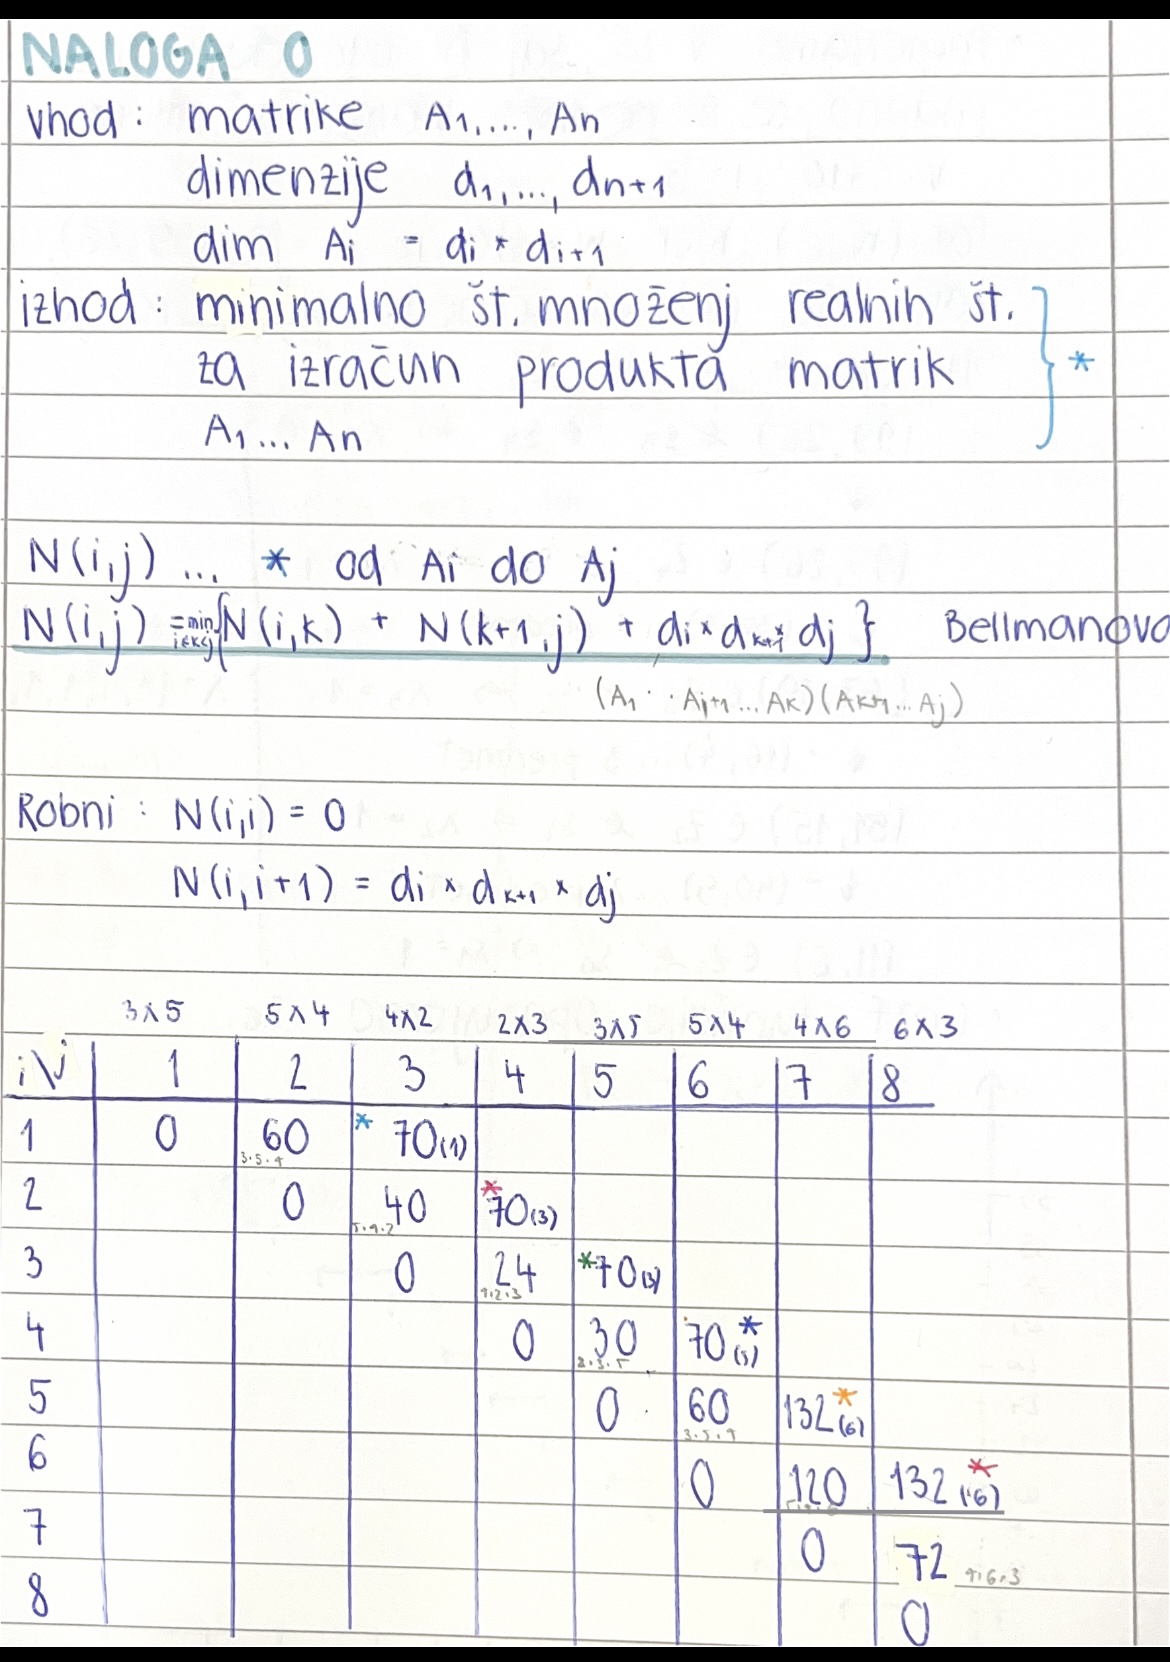 NALOGA 0
vhod : matrike A1,..., An
dimenzije d1,..., dn+1
dim Ai = di * di+1
izhod : minimalno št. množenj realnih št.
za izračun produkta matrik *
A1 ... An
N(i,j) ... * od Ai do Aj
N(i,j) = min i≤k<j {N(i,k) + N(k+1,j) + di * dk+1 * dj } Bellmanova
(A1 · · Aj+1 ... Ak)(Ak+1 ... Aj)
Robni : N(i,i) = 0
N(i,i+1) = di * dk+1 * dj
3x5 5x4 4x2 2x3 3x5 5x4 4x6 6x3
i\j 1 2 3 4 5 6 7 8
1 0 60 3·5·4 * 70(1)
2 0 40 5·4·2 * 70(3)
3 0 24 4·2·3 * 70(3)
4 0 30 2·3·5 70 * (5)
5 0 60 3·5·4 132 * (6)
6 0 120 132 * (6)
7 0 72 4·6·3
8 0